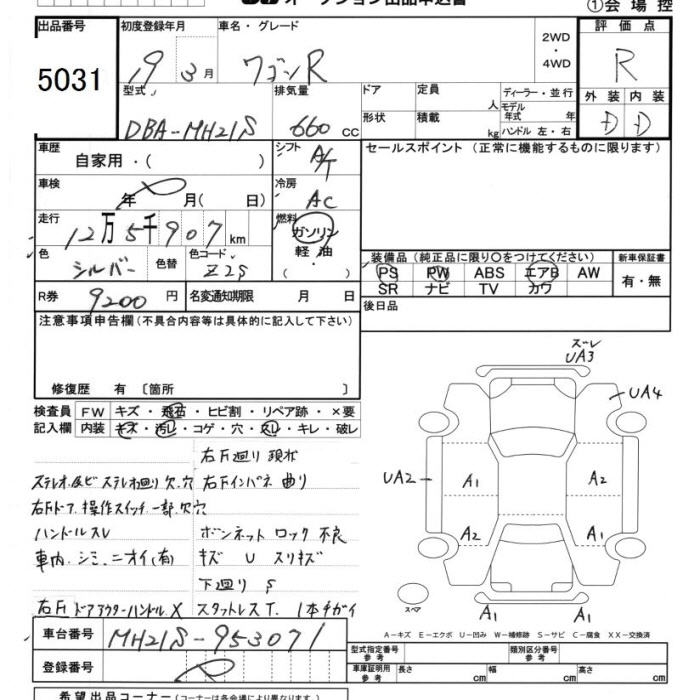 オークション出品申込書
①会場控
出品番号 初度登録年月 車名・グレード 2WD・4WD 評価点
5031 19 3月 ワゴンR R
型式 排気量 ドア 定員 人 ディーラー・並行 外装 内装
DBA-MH21S 660cc 形状 積載 kg モデル年式 年 ハンドル 左・右 D D
車歴 自家用・( ) シフト A/T セールスポイント(正常に機能するものに限ります)
車検 年 月(日) 冷房 AC
走行 12万5千907km 燃料 ガソリン
軽油
・( )
色 シルバー 色替 色コード Z2S
装備品(純正品に限り○をつけてください) 新車保証書
PS PW ABS エアB AW 有・無
SR ナビ TV カワ
R券 9200円 名変通知期限 月 日 後日品
注意事項申告欄(不具合内容等は具体的に記入して下さい)
修復歴 有〔箇所 〕
ズーレ
UA3
UA4
検査員 FW キズ・飛石・ヒビ割・リペア跡・×要
記入欄 内装 キズ・汚レ・コゲ・穴・スレ・キレ・破レ
右F廻り
ステレオ及ビステレオ廻り欠.穴 右Fインパネ 曲り
右Fドア.操作スイッチ一部欠穴
ハンドルスレ ボンネットロック不良
車内.シミ.ニオイ(有) キズ U スリキズ
下廻り S
右F ドアアウターハンドル X スタットレスT. 1本チガイ
UA2 A1 A2
A2 A1
スペア
A1 A1
A-キズ E-エクボ U-凹み W-補修跡 S-サビ C-腐食 XX-交換済
車台番号 MH21S-953071
登録番号
型式指定番号 参考 類別区分番号 参考
車庫証明用 参考 長さ cm 幅 cm 高さ cm
希望出品コーナー(コーナーは各会場により異なります。)